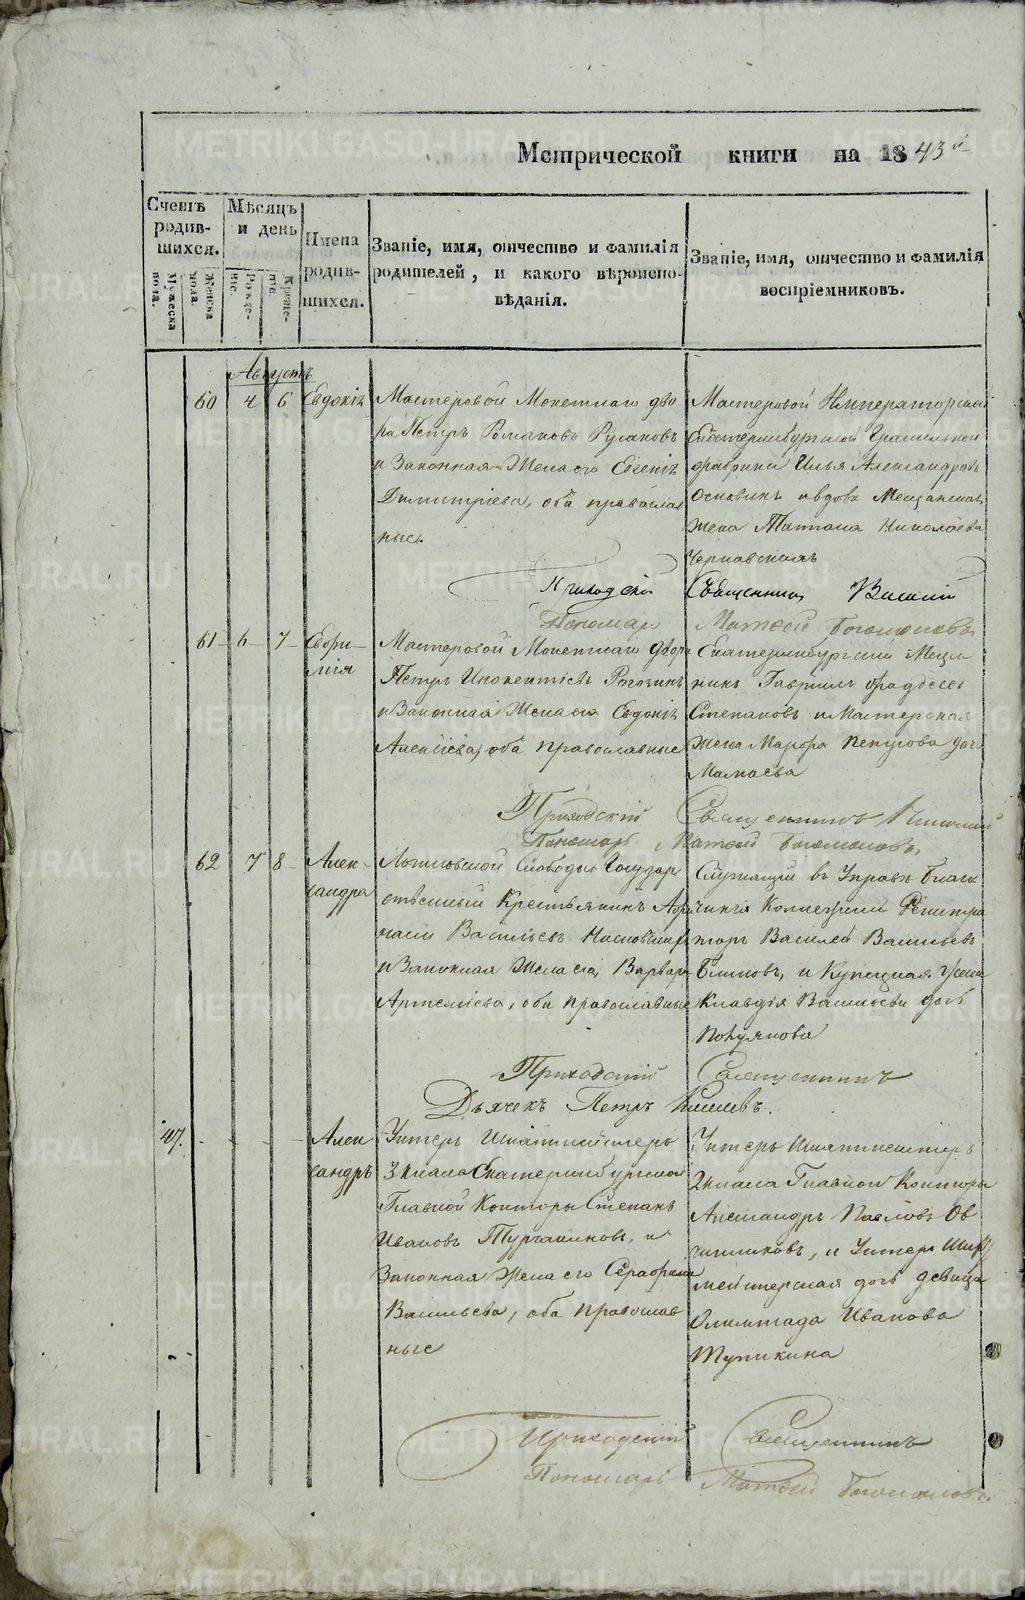 METRIKI.GASO-URAL.RU
Метрической книги на 1843й
Счетъ родив-шихся.
Мужеска пола.
Женска пола.
Мѣсяцъ и день
Рожде-нія.
Креще-нія.
Имена родив-шихся.
Званіе, имя, отчество и фамилія родителей, и какого вѣроиспо-вѣданія.
Званіе, имя, отчество и фамилія воспріемниковъ.
Августъ
60 4 6 Евдокія
Мастеровой Монетнаго дво
ра Петръ Романовъ Русановъ
и Законная Жена его Евгенія
Димитріева, оба православ
ные.
Мастеровой Императорской
Екатеринбургской Гранильной
фабрики Илья Александровъ
и вдова Мещанская
жена Татіана Николаева
Приходскій Священникъ
Пономарь Матѳей Богомоловъ
61 6 7 Евфи-
мія
Мастеровой Монетнаго двора
Петръ Инокентіевъ Рогозинъ
и Законная Жена его Евдокія
Алексіева, оба православные
Екатеринбургскій Меща
нинъ Гавріилъ Фаддеевъ
Степановъ и Мастерская
жена Марфа дочь
Мамаева
Приходскій Священникъ
Пономарь Матѳей Богомоловъ.
62 7 8 Алек-
сандра
Слободы Государ
ственный Крестьянинъ Афа
насій Васильевъ
и Законная Жена его Варвара
Артеміева, оба православные
Служащій въ Управѣ Благо
чинія Коллежскій Регистра
торъ Василей Васильевъ
Блиновъ, и Купецкая жена
Клавдія Васильева дочь
Приходскій Священникъ
Дьячекъ Петръ Киселевъ.
47. - - - Алек
сандръ
Унтеръ Шихтмейстеръ
3 класа Екатеринбургской
Главной Конторы Степанъ
Ивановъ Турчаниновъ, и
Законная Жена его Серафима
Васильева, оба православ
ные
Унтеръ Шихтмейстеръ
2 класа Главной Конторы
Александръ Павловъ Ов
чинниковъ, и Унтеръ Шихт
мейстерская дочь девица
Олимпіада Иванова
Тупикина
Приходскій Священникъ
Пономарь Матѳей Богомоловъ.